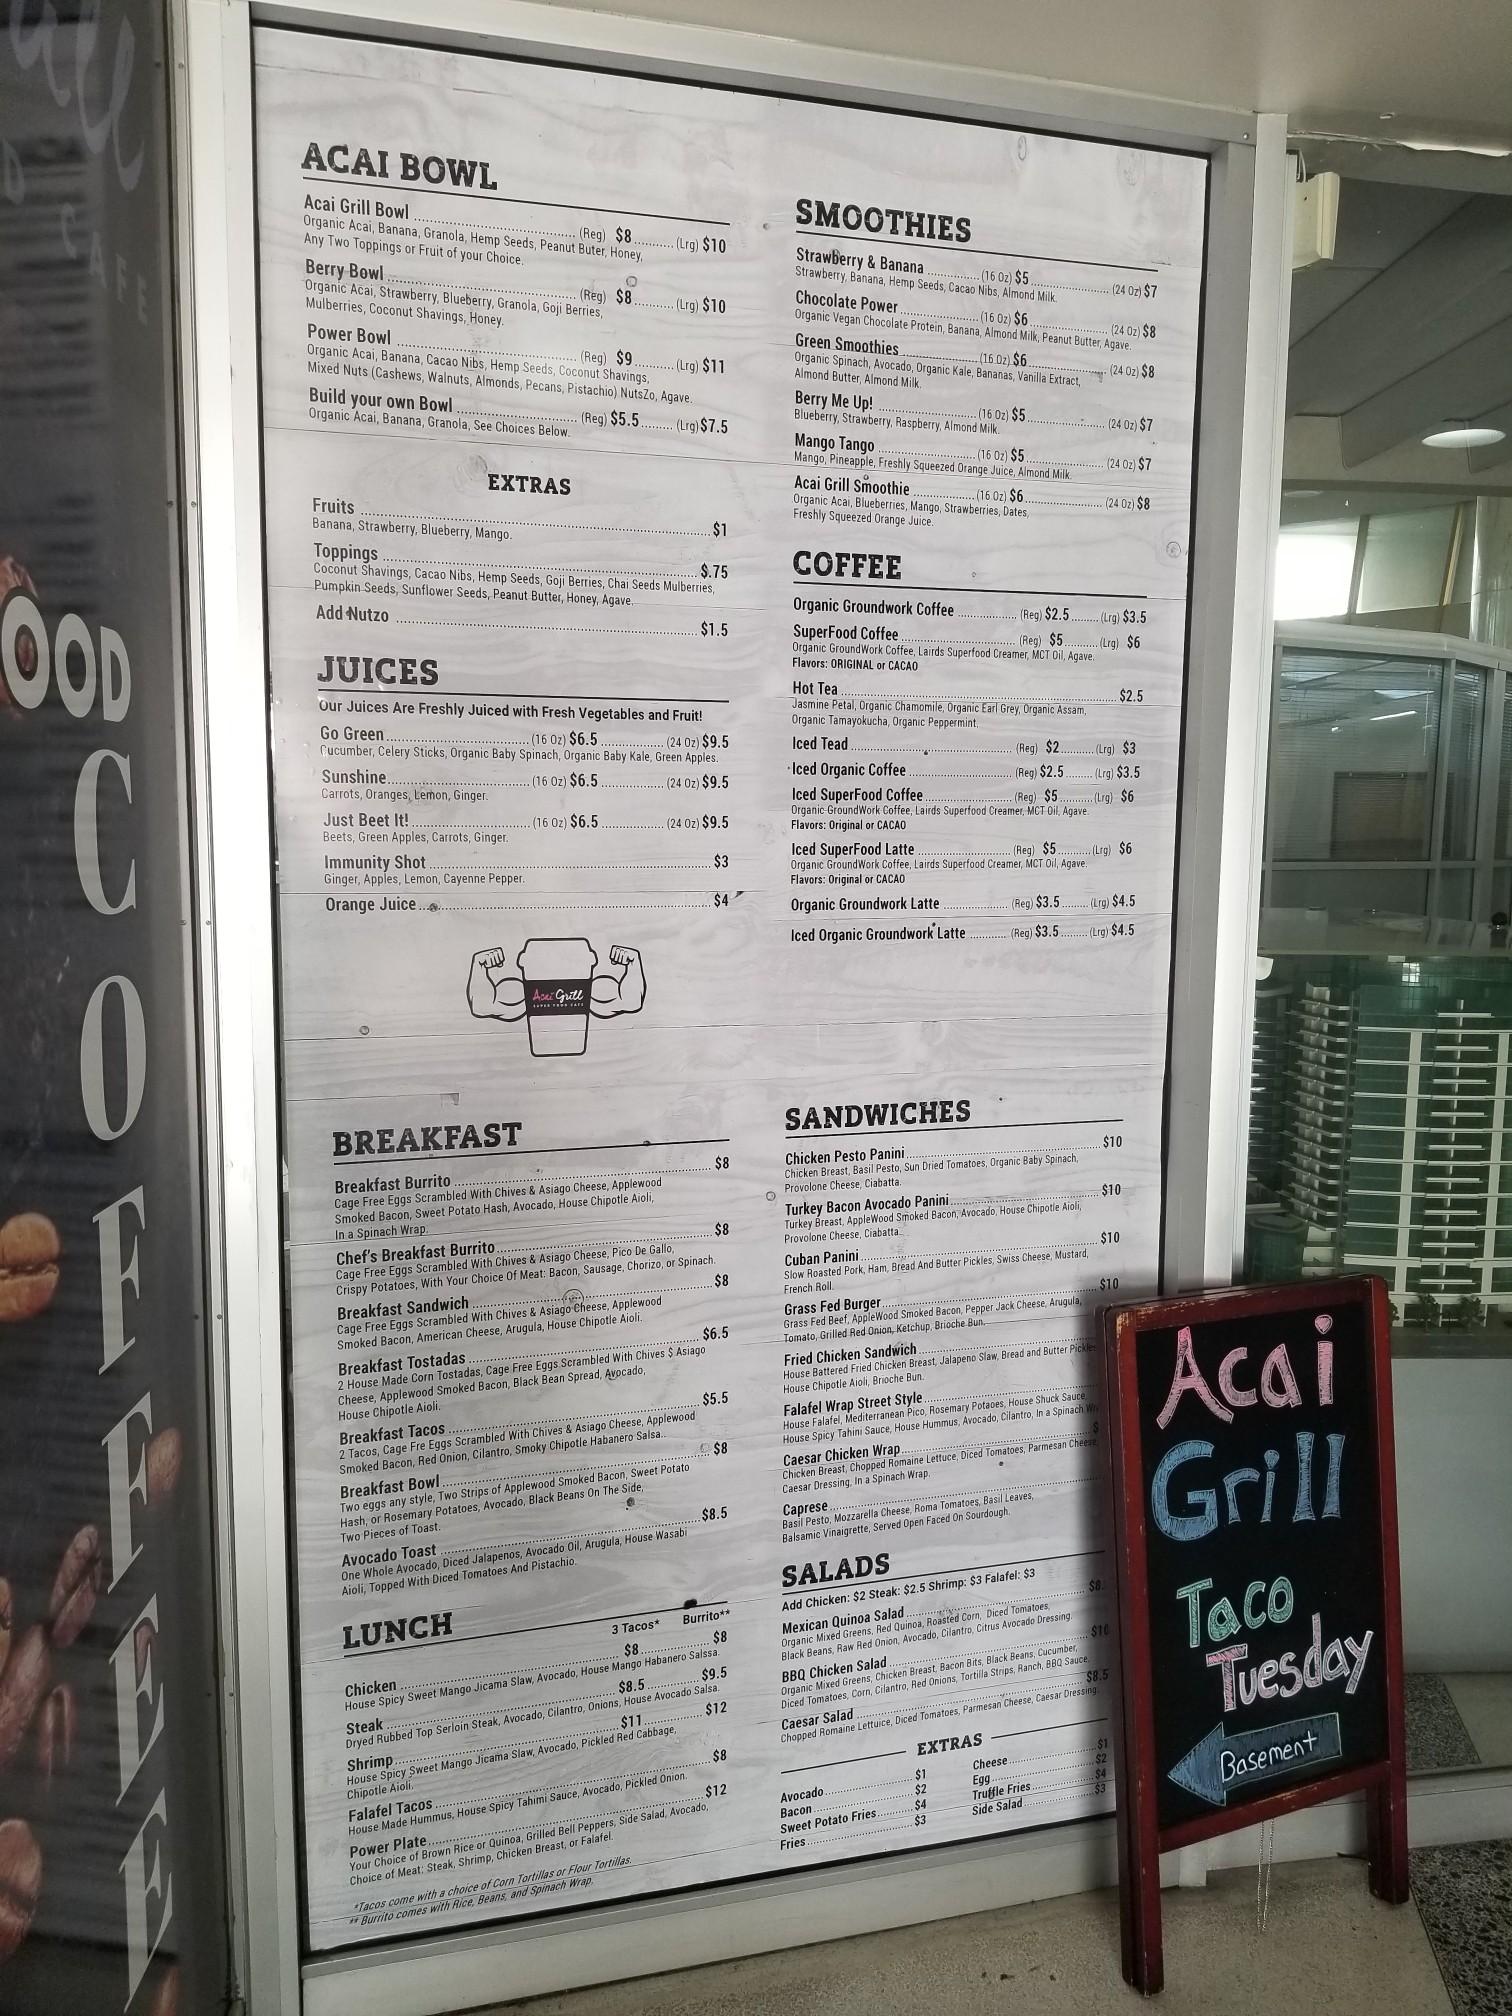 OOD
COFFEE
CAFE
ACAI BOWL
Acai Grill Bowl ........ (Reg) $8 ........ (Lrg) $10
Organic Acai, Banana, Granola, Hemp Seeds, Peanut Buter, Honey,
Any Two Toppings or Fruit of your Choice.
Berry Bowl ........ (Reg) $8 ........ (Lrg) $10
Organic Acai, Strawberry, Blueberry, Granola, Goji Berries,
Mulberries, Coconut Shavings, Honey.
Power Bowl ........ (Reg) $9 ........ (Lrg) $11
Organic Acai, Banana, Cacao Nibs, Hemp Seeds, Coconut Shavings,
Mixed Nuts (Cashews, Walnuts, Almonds, Pecans, Pistachio) NutsZo, Agave.
Build your own Bowl ........ (Reg) $5.5 ........ (Lrg) $7.5
Organic Acai, Banana, Granola, See Choices Below.
EXTRAS
Fruits ........ $1
Banana, Strawberry, Blueberry, Mango.
Toppings ........ $.75
Coconut Shavings, Cacao Nibs, Hemp Seeds, Goji Berries, Chai Seeds Mulberries,
Pumpkin Seeds, Sunflower Seeds, Peanut Butter, Honey, Agave.
Add Nutzo ........ $1.5
JUICES
Our Juices Are Freshly Juiced with Fresh Vegetables and Fruit!
Go Green ........ (16 Oz) $6.5 ........ (24 Oz) $9.5
Cucumber, Celery Sticks, Organic Baby Spinach, Organic Baby Kale, Green Apples.
Sunshine ........ (16 Oz) $6.5 ........ (24 Oz) $9.5
Carrots, Oranges, Lemon, Ginger.
Just Beet It! ........ (16 Oz) $6.5 ........ (24 Oz) $9.5
Beets, Green Apples, Carrots, Ginger.
Immunity Shot ........ $3
Ginger, Apples, Lemon, Cayenne Pepper.
Orange Juice ........ $4
Acai Grill
SUPER FOOD CAFE
SMOOTHIES
Strawberry & Banana ........ (16 Oz) $5 ........ (24 Oz) $7
Strawberry, Banana, Hemp Seeds, Cacao Nibs, Almond Milk.
Chocolate Power ........ (16 Oz) $6 ........ (24 Oz) $8
Organic Vegan Chocolate Protein, Banana, Almond Milk, Peanut Butter, Agave.
Green Smoothies ........ (16 Oz) $6 ........ (24 Oz) $8
Organic Spinach, Avocado, Organic Kale, Bananas, Vanilla Extract,
Almond Butter, Almond Milk.
Berry Me Up! ........ (16 Oz) $5 ........ (24 Oz) $7
Blueberry, Strawberry, Raspberry, Almond Milk.
Mango Tango ........ (16 Oz) $5 ........ (24 Oz) $7
Mango, Pineapple, Freshly Squeezed Orange Juice, Almond Milk.
Acai Grill Smoothie ........ (16 Oz) $6 ........ (24 Oz) $8
Organic Acai, Blueberries, Mango, Strawberries, Dates,
Freshly Squeezed Orange Juice.
COFFEE
Organic Groundwork Coffee ........ (Reg) $2.5 ........ (Lrg) $3.5
SuperFood Coffee ........ (Reg) $5 ........ (Lrg) $6
Organic GroundWork Coffee, Lairds Superfood Creamer, MCT Oil, Agave.
Flavors: ORIGINAL or CACAO
Hot Tea ........ $2.5
Jasmine Petal, Organic Chamomile, Organic Earl Grey, Organic Assam,
Organic Tamayokucha, Organic Peppermint.
Iced Tead ........ (Reg) $2 ........ (Lrg) $3
Iced Organic Coffee ........ (Reg) $2.5 ........ (Lrg) $3.5
Iced SuperFood Coffee ........ (Reg) $5 ........ (Lrg) $6
Organic GroundWork Coffee, Lairds Superfood Creamer, MCT Oil, Agave.
Flavors: Original or CACAO
Iced SuperFood Latte ........ (Reg) $5 ........ (Lrg) $6
Organic GroundWork Coffee, Lairds Superfood Creamer, MCT Oil, Agave.
Flavors: Original or CACAO
Organic Groundwork Latte ........ (Reg) $3.5 ........ (Lrg) $4.5
Iced Organic Groundwork Latte ........ (Reg) $3.5 ........ (Lrg) $4.5
BREAKFAST
Breakfast Burrito ........ $8
Cage Free Eggs Scrambled With Chives & Asiago Cheese, Applewood
Smoked Bacon, Sweet Potato Hash, Avocado, House Chipotle Aioli,
In a Spinach Wrap.
Chef's Breakfast Burrito ........ $8
Cage Free Eggs Scrambled With Chives & Asiago Cheese, Pico De Gallo,
Crispy Potatoes, With Your Choice Of Meat: Bacon, Sausage, Chorizo, or Spinach.
Breakfast Sandwich ........ $8
Cage Free Eggs Scrambled With Chives & Asiago Cheese, Applewood
Smoked Bacon, American Cheese, Arugula, House Chipotle Aioli.
Breakfast Tostadas ........ $6.5
2 House Made Corn Tostadas, Cage Free Eggs Scrambled With Chives $ Asiago
Cheese, Applewood Smoked Bacon, Black Bean Spread, Avocado,
House Chipotle Aioli.
Breakfast Tacos ........ $5.5
2 Tacos, Cage Fre Eggs Scrambled With Chives & Asiago Cheese, Applewood
Smoked Bacon, Red Onion, Cilantro, Smoky Chipotle Habanero Salsa..
Breakfast Bowl ........ $8
Two eggs any style, Two Strips of Applewood Smoked Bacon, Sweet Potato
Hash, or Rosemary Potatoes, Avocado, Black Beans On The Side,
Two Pieces of Toast.
Avocado Toast ........ $8.5
One Whole Avocado, Diced Jalapenos, Avocado Oil, Arugula, House Wasabi
Aioli, Topped With Diced Tomatoes And Pistachio.
LUNCH 3 Tacos* Burrito**
Chicken ........ $8 ........ $8
House Spicy Sweet Mango Jicama Slaw, Avocado, House Mango Habanero Salssa.
Steak ........ $8.5 ........ $9.5
Dryed Rubbed Top Serloin Steak, Avocado, Cilantro, Onions, House Avocado Salsa.
Shrimp ........ $11 ........ $12
House Spicy Sweet Mango Jicama Slaw, Avocado, Pickled Red Cabbage,
Chipotle Aioli.
Falafel Tacos ........ $8
House Made Hummus, House Spicy Tahimi Sauce, Avocado, Pickled Onion.
Power Plate ........ $12
Your Choice of Brown Rice or Quinoa, Grilled Bell Peppers, Side Salad, Avocado,
Choice of Meat: Steak, Shrimp, Chicken Breast, or Falafel.
*Tacos come with a choice of Corn Tortillas or Flour Tortillas.
** Burrito comes with Rice, Beans, and Spinach Wrap.
SANDWICHES
Chicken Pesto Panini ........ $10
Chicken Breast, Basil Pesto, Sun Dried Tomatoes, Organic Baby Spinach,
Provolone Cheese, Ciabatta.
Turkey Bacon Avocado Panini ........ $10
Turkey Breast, AppleWood Smoked Bacon, Avocado, House Chipotle Aioli,
Provolone Cheese, Ciabatta.
Cuban Panini ........ $10
Slow Roasted Pork, Ham, Bread And Butter Pickles, Swiss Cheese, Mustard,
French Roll.
Grass Fed Burger ........ $10
Grass Fed Beef, AppleWood Smoked Bacon, Pepper Jack Cheese, Arugula,
Tomato, Grilled Red Onion, Ketchup, Brioche Bun.
Fried Chicken Sandwich ........
House Battered Fried Chicken Breast, Jalapeno Slaw, Bread and Butter Pickles
House Chipotle Aioli, Brioche Bun.
Falafel Wrap Street Style ........
House Falafel, Mediterranean Pico, Rosemary Potaoes, House Shuck Sauce,
House Spicy Tahini Sauce, House Hummus, Avocado, Cilantro, In a Spinach
Caesar Chicken Wrap ........ $
Chicken Breast, Chopped Romaine Lettuce, Diced Tomatoes, Parmesan Cheese,
Caesar Dressing, In a Spinach Wrap.
Caprese ........
Basil Pesto, Mozzarella Cheese, Roma Tomatoes, Basil Leaves,
Balsamic Vinaigrette, Served Open Faced On Sourdough.
SALADS
Add Chicken: $2 Steak: $2.5 Shrimp: $3 Falafel: $3
Mexican Quinoa Salad ........ $8
Organic Mixed Greens, Red Quinoa, Roasted Corn, Diced Tomatoes,
Black Beans, Raw Red Onion, Avocado, Cilantro, Citrus Avocado Dressing.
BBQ Chicken Salad ........ $10
Organic Mixed Greens, Chicken Breast, Bacon Bits, Black Beans, Cucumber,
Diced Tomatoes, Corn, Cilantro, Red Onions, Tortilla Strips, Ranch, BBQ Sauce.
Caesar Salad ........ $8.5
Chopped Romaine Lettuice, Diced Tomatoes, Parmesan Cheese, Caesar Dressing.
EXTRAS
Avocado ........ $1
Bacon ........ $2
Sweet Potato Fries ........ $4
Fries ........ $3
Cheese ........ $1
Egg ........ $2
Truffle Fries ........ $4
Side Salad ........ $3
Acai
Grill
Taco
Tuesday
Basement